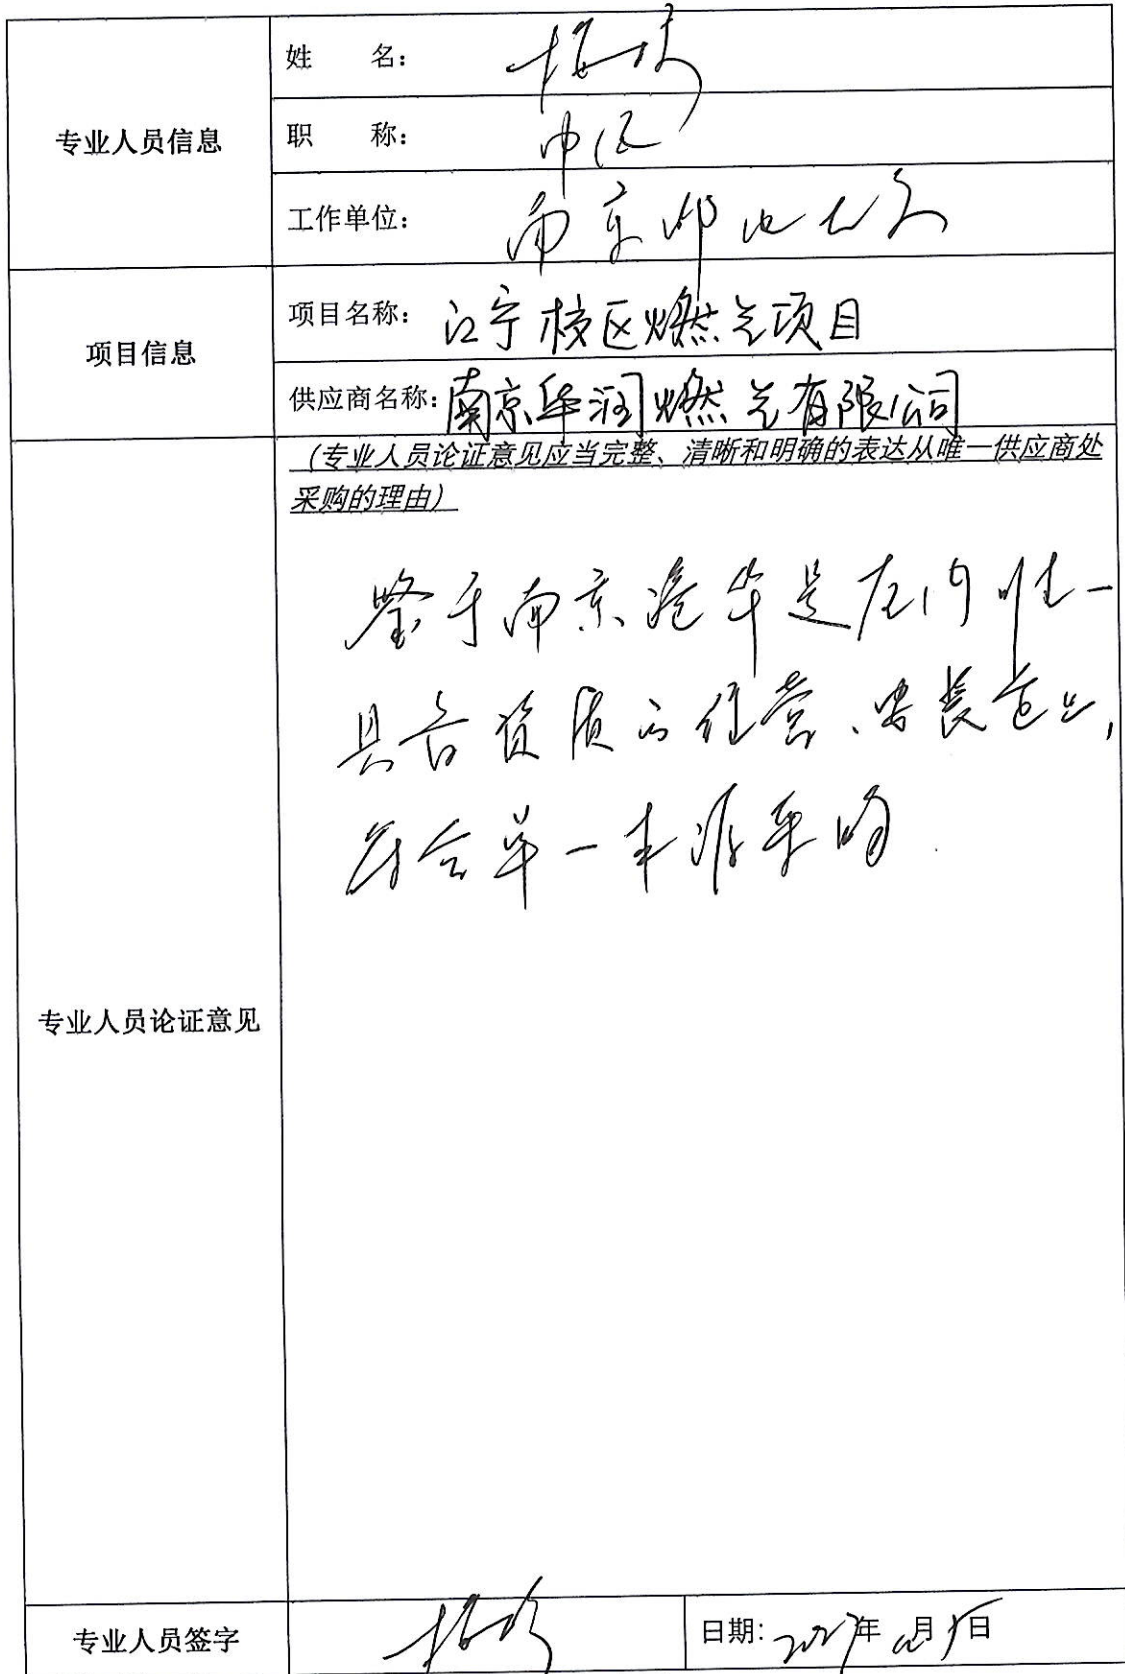 专业人员信息
姓 名：
职 称：
工作单位： 南京邮电大学
项目信息
项目名称： 江宁校区燃气项目
供应商名称：南京华润燃气有限公司
专业人员论证意见
（专业人员论证意见应当完整、清晰和明确的表达从唯一供应商处
采购的理由）
鉴于南京港华是 内唯一
具备资质的经营、安装企业，
符合单一来源采购.
专业人员签字
日期： 年 月 日